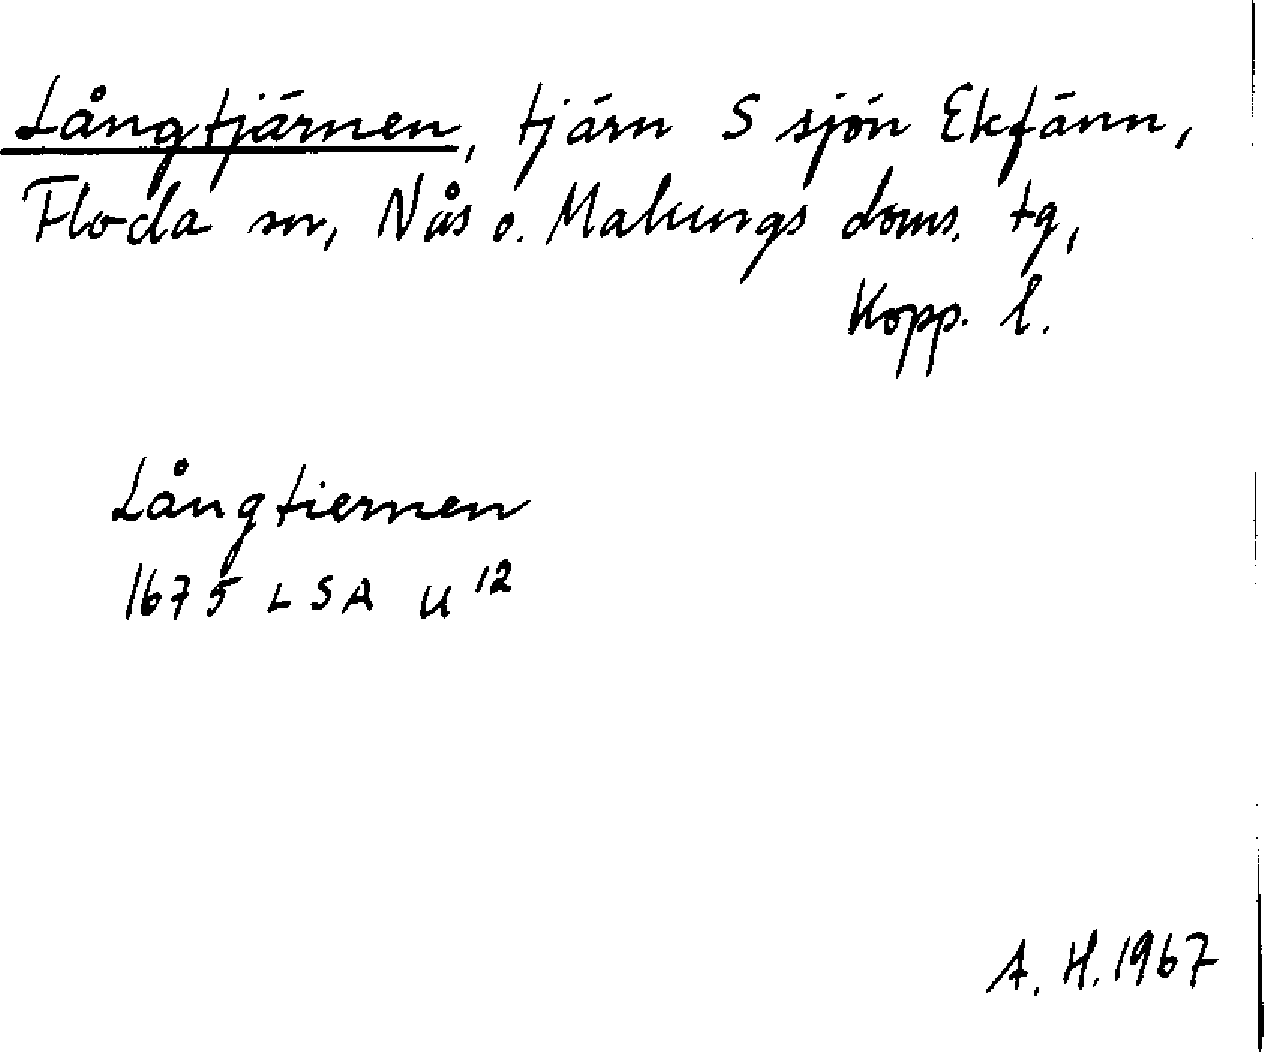 Långtjärnen, tjärn S sjön Ekfänn,
Floda sn, Nås o. Malungs doms. tg,
Kopp. l.
Långtiernen
1675 LSA U¹²
A. H. 1967